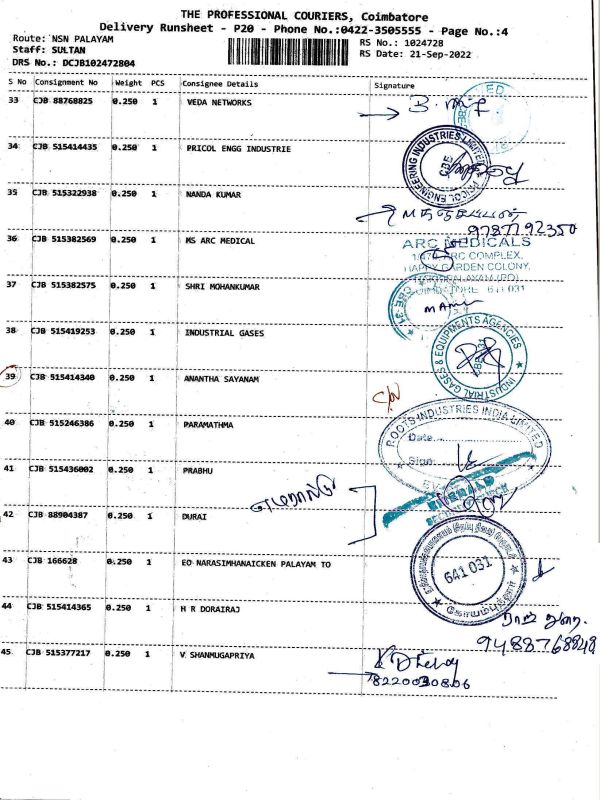 THE PROFESSIONAL COURIERS, Coimbatore
Delivery Runsheet - P20 - Phone No.:0422-3505555 - Page No.:4
Route: NSN PALAYAM
RS No.: 1024728
Staff: SULTAN
RS Date: 21-Sep-2022
DRS No.: DCJB102472804
S No Consignment No Weight PCS Consignee Details Signature
33 CJB 88768825 0.250 1 VEDA NETWORKS
34 CJB 515414435 0.250 1 PRICOL ENGG INDUSTRIE
PRICOL ENGINEERING INDUSTRIES LIMITED
CBE
35 CJB 515322938 0.250 1 NANDA KUMAR
9787792350
36 CJB 515382569 0.250 1 MS ARC MEDICAL
ARC MEDICALS
ARC COMPLEX,
HAPPY GARDEN COLONY,
COIMBATORE 641 031
37 CJB 515382575 0.250 1 SHRI MOHANKUMAR
38 CJB 515419253 0.250 1 INDUSTRIAL GASES
INDUSTRIAL GASES & EQUIPMENTS AGENCIES
39 CJB 515414340 0.250 1 ANANTHA SAYANAM
40 CJB 515246386 0.250 1 PARAMATHMA
ROOTS INDUSTRIES INDIA LIMITED
Date
Sign
41 CJB 515436002 0.250 1 PRABHU
EMERALD
42 CJB 88904387 0.250 1 DURAI
43 CJB 166628 0.250 1 EO NARASIMHANAICKEN PALAYAM TO
641 031
கோயம்புத்தூர்
44 CJB 515414365 0.250 1 H R DORAIRAJ
9488768848
45 CJB 515377217 0.250 1 V SHANMUGAPRIYA
8220030806